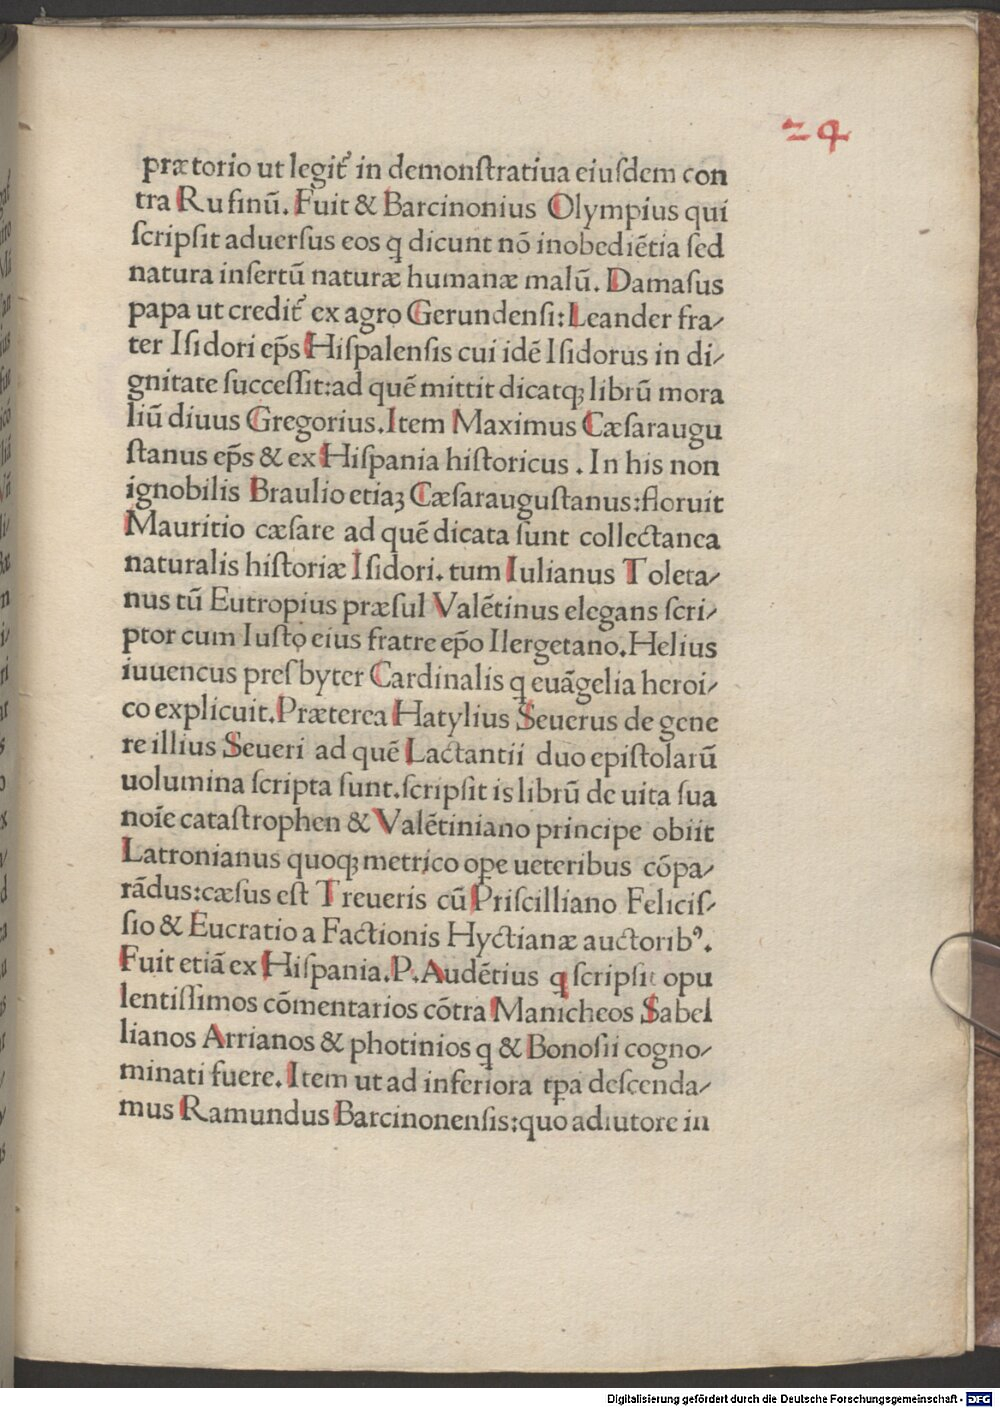 24
prætorio ut legit᷑ in demonſtratiua eiuſdem con
tra Rufinū. Fuit & Barcinonius Olympius qui
ſcripſit aduerſus eos q dicunt nō inobediētia ſed
natura inſertū naturæ humanæ malū. Damaſus
papa ut credit᷑ ex agro Gerundenſi: Leander fra⸗
ter Iſidori ep̄s Hiſpalenſis cui idē Iſidorus in di⸗
gnitate ſucceſſit: ad quē mittit dicatqꝫ librū mora
liū diuus Gregorius. Item Maximus Cæſaraugu
ſtanus ep̄s & ex Hiſpania hiſtoricus . In his non
ignobilis Braulio etiaꝫ Cæſarauguſtanus: floruit
Mauritio cæſare ad quē dicata ſunt collectanea
naturalis hiſtoriæ Iſidori. tum Iulianus Toleta⸗
nus tū Eutropius præſul Valētinus elegans ſcri⸗
ptor cum Iuſto eius fratre ep̄o Ilergetano. Helius
iuuencus preſbyter Cardinalis q euāgelia heroi⸗
co explicuit. Præterea Hatylius Seuerus de gene
re illius Seueri ad quē Lactantii duo epiſtolarū
uolumina ſcripta ſunt. ſcripſit is librū de uita ſua
noīe cataſtrophen & Valētiniano principe obiit
Latronianus quoqꝫ metrico ope ueteribus cōpa⸗
rādus: cæſus eſt Treueris cū Priſcilliano Feliciſ⸗
ſio & Eucratio a Factionis Hyctianæ auctoribꝰ.
Fuit etiā ex Hiſpania. P. Audētius q ſcripſit opu
lentiſſimos cōmentarios cōtra Manicheos Sabel
lianos Arrianos & photinios q & Bonoſii cogno⸗
minati fuere. Item ut ad inferiora tpa deſcenda⸗
mus Ramundus Barcinonenſis: quo adiutore in
Digitalisierung gefördert durch die Deutsche Forschungsgemeinschaft - DFG